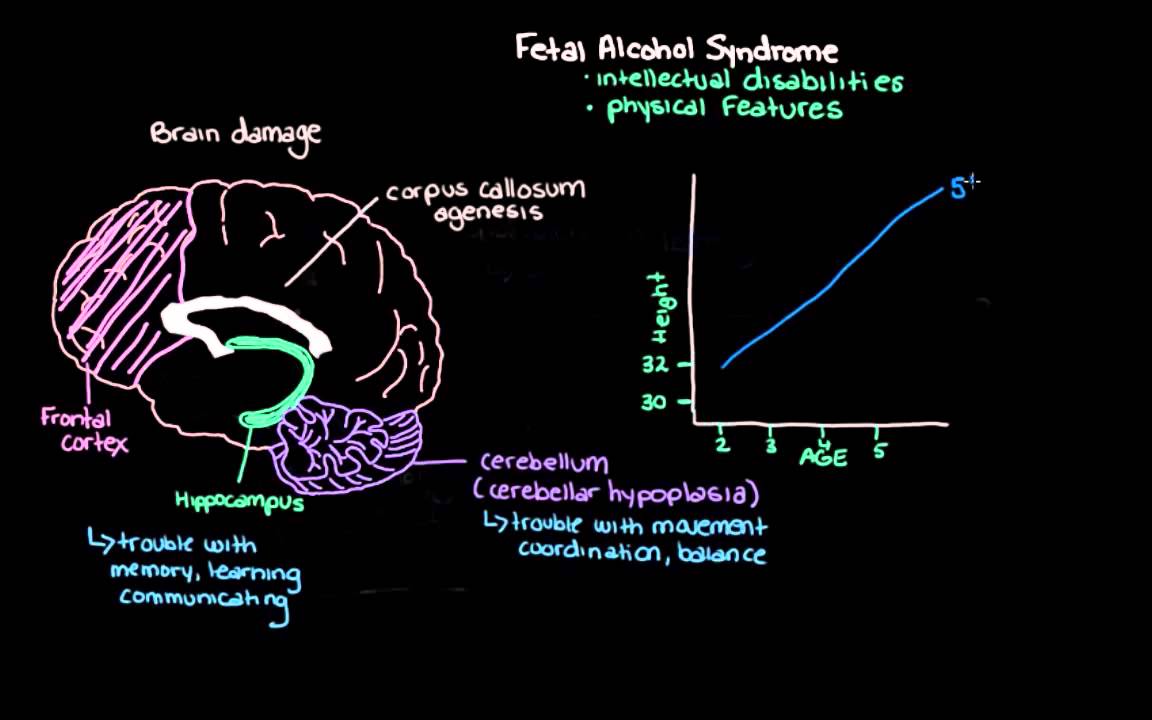 Fetal Alcohol Syndrome
• intellectual disabilities
• physical features
Brain damage
corpus callosum
agenesis
Frontal
cortex
Hippocampus
↳trouble with
memory, learning
communicating
cerebellum
(cerebellar hypoplasia)
↳trouble with movement
coordination, balance
5
Height
32
30
2 3 4 5
AGE